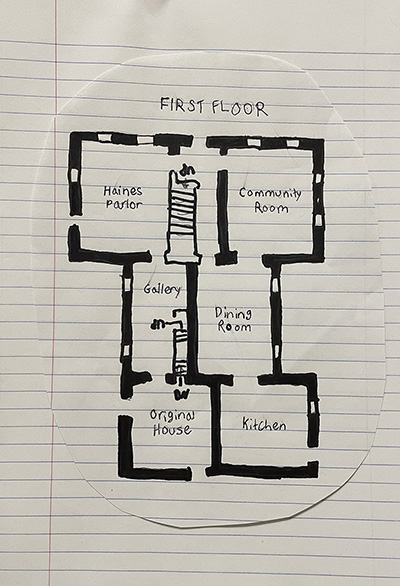 FIRST FLOOR
dn
Haines
Parlor
Community
Room
Gallery
Dining
Room
dn
Original
House
Kitchen